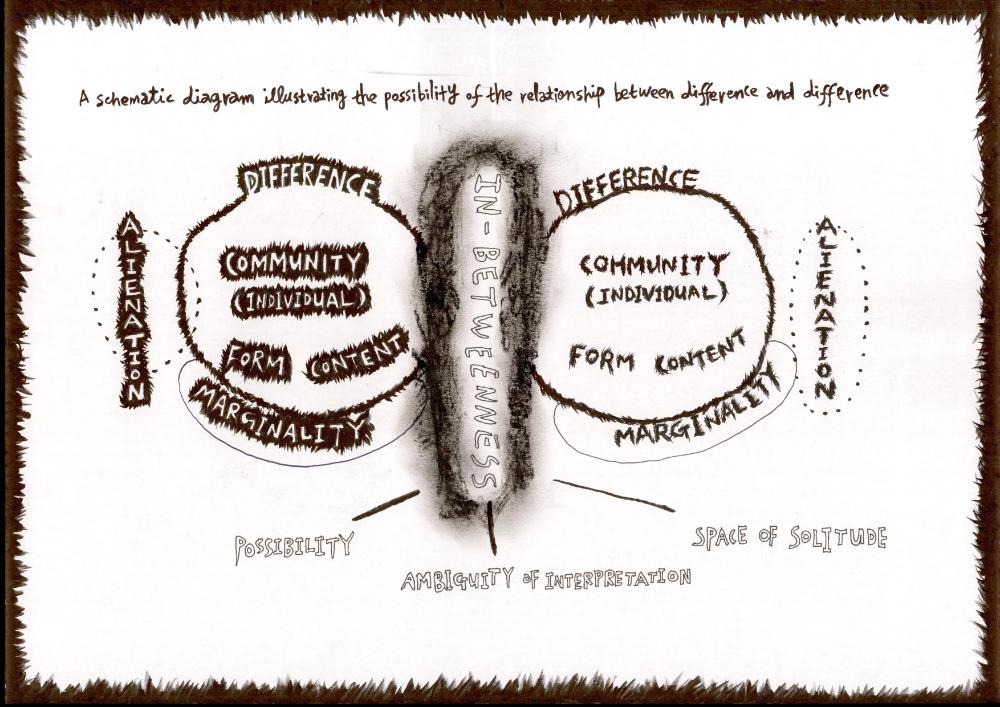 A schematic diagram illustrating the possibility of the relationship between difference and difference
DIFFERENCE
ALIENATION
COMMUNITY
(INDIVIDUAL)
FORM CONTENT
MARGINALITY
IN-BETWEENNESS
DIFFERENCE
COMMUNITY
(INDIVIDUAL)
FORM CONTENT
MARGINALITY
ALIENATION
POSSIBILITY
AMBIGUITY OF INTERPRETATION
SPACE OF SOLITUDE